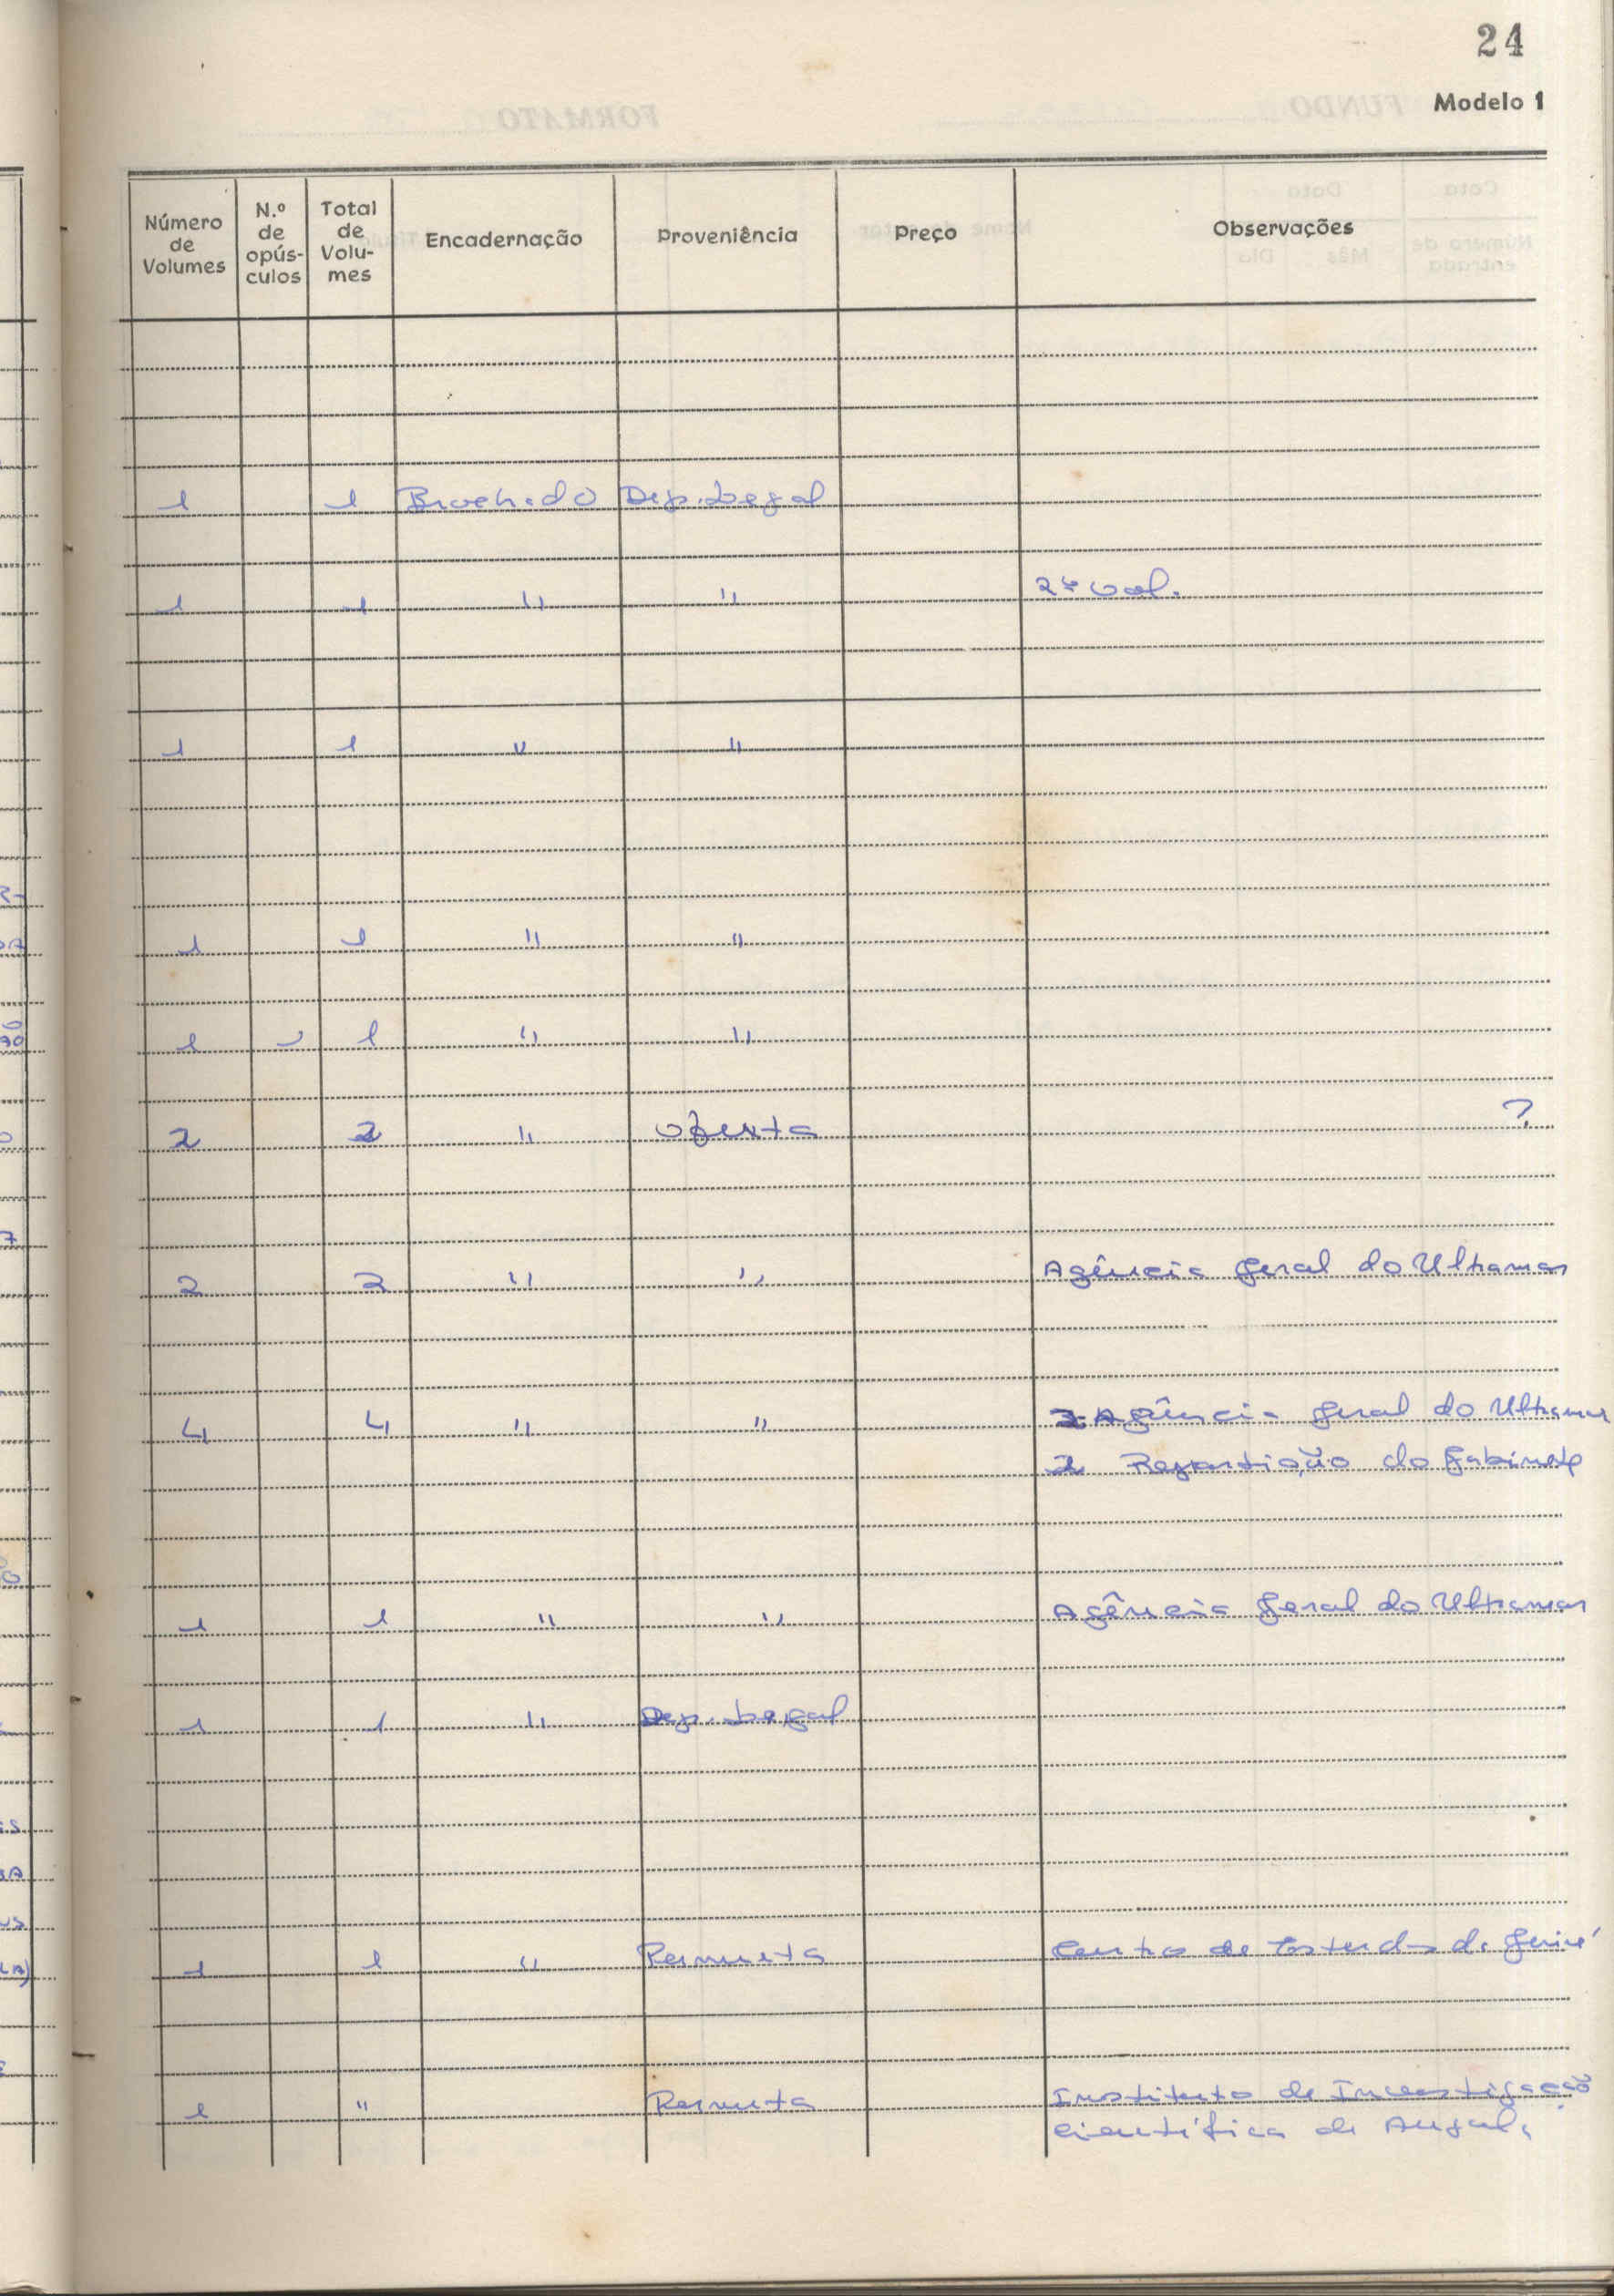 24
Modelo 1
Número de Volumes | N.º de opús-culos | Total de Volu-mes | Encadernação | Proveniência | Preço | Observações
1 1 Brochado Dep. Legal
1 1 " " 2º vol.
1 1 " "
1 1 " "
1 1 " "
2 2 " Oferta ?
2 2 " " Agência Geral do Ultramar
4 4 " " 2 Agência Geral do Ultramar
2 Repartição do Gabinete
1 1 " " Agência Geral do Ultramar
1 1 " Dep. Legal
1 1 " Permuta Centro de Estudos da Guiné
1 " Permuta Instituto de Investigação
Científica de Angola